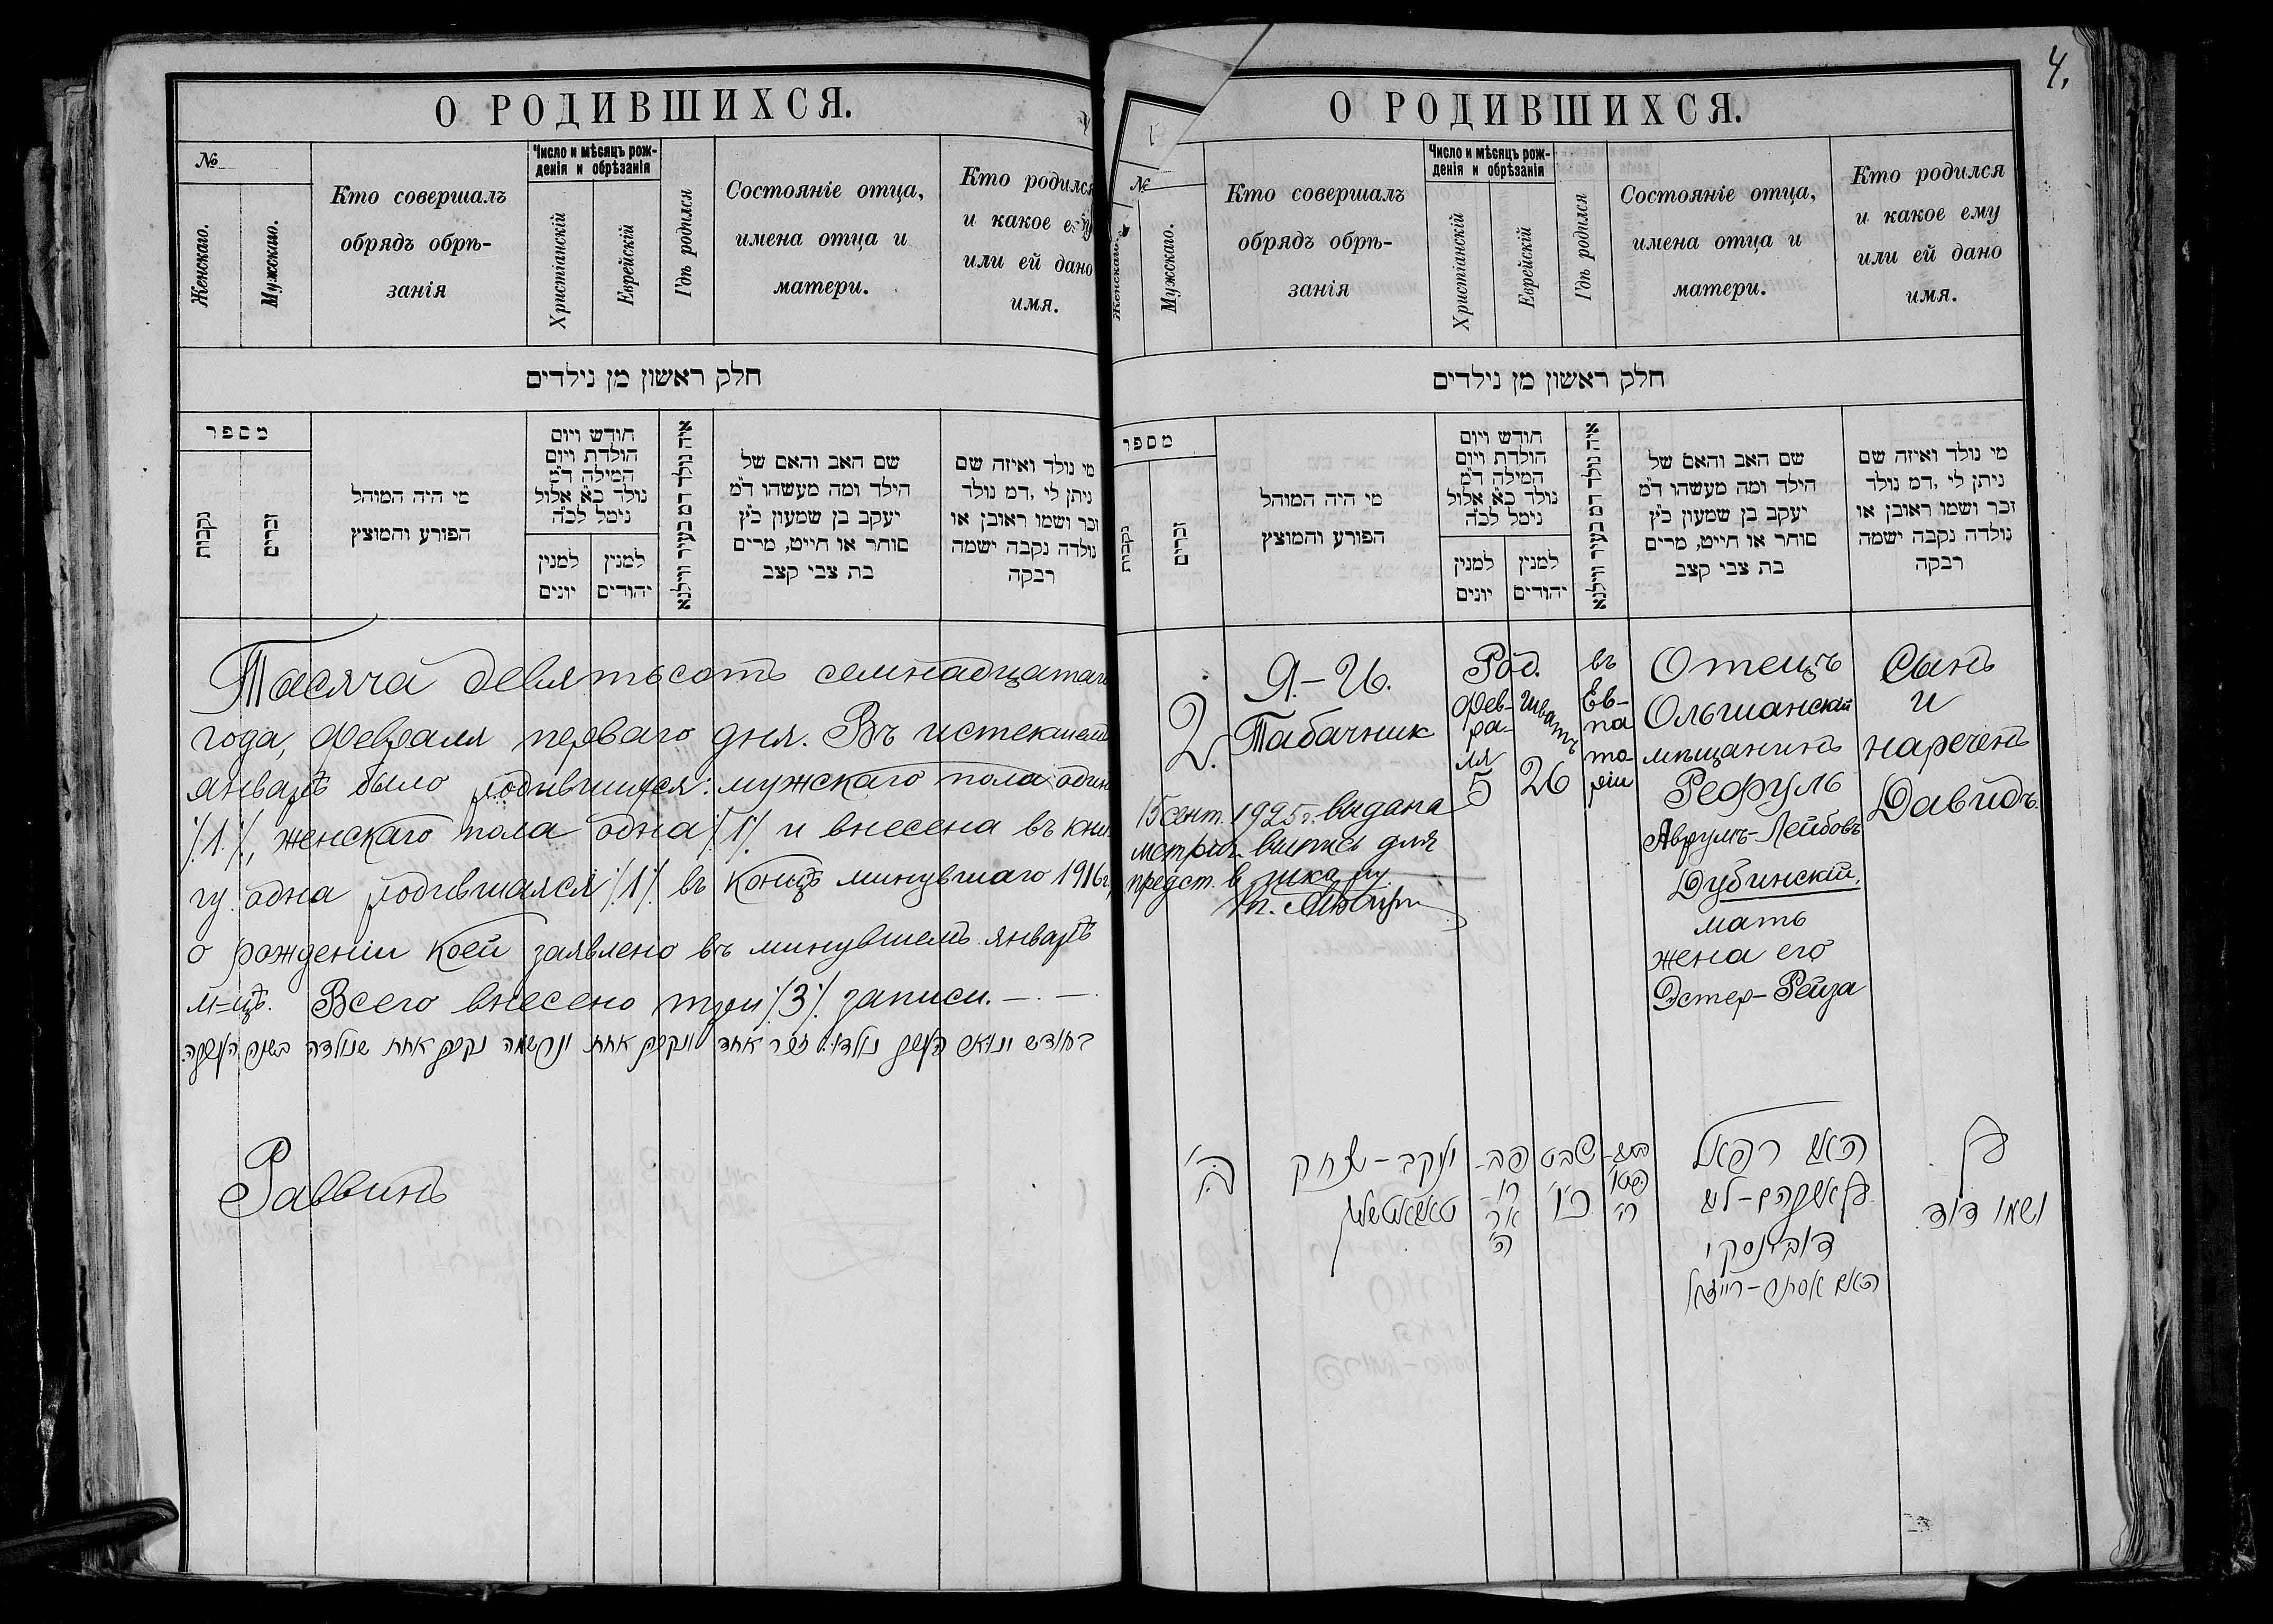 О РОДИВШИХСЯ.
№
Женскаго.
Мужскаго.
Кто совершалъ
обрядъ обрѣ-
занія
Число и мѣсяцъ рож-
денія и обрѣзанія
Христіанскій
Еврейскій
Гдѣ родился
Состояніе отца,
имена отца и
матери.
Кто родился
и какое ему
или ей дано
имя.
חלק ראשון מן נילדים
מספר
נקבות
זכרים
מי היה המוהל
הפורע והמוצץ
חודש ויום
הולדת ויום
המילה ד״מ
נולד כ״א אלול
נימל לכ״ה
למנין
יונים
למנין
יהודים
איה נולד דמ בעיר ווילנא
שם האב והאם של
הילד ומה מעשהו ד״מ
יעקב בן שמעון כ״ץ
סוחר או חייט, מרים
בת צבי קצב
מי נולד ואיזה שם
ניתן לי ,דמ נולד
זכר ושמו ראובן או
נולדה נקבה ישמה
רבקה
Тысяча девятьсотъ семнадцатаго
года, февраля перваго дня. Въ истекшемъ
январѣ было родившихся: мужскаго пола одинъ
/1/, женскаго пола одна /1/ и внесена въ кни-
гу одна родившаяся /1/ въ концѣ минувшаго 1916 г.,
о рожденіи коей заявлено въ минувшемъ январѣ
м=цѣ. Всего внесено три /3/ записи. —. —.
בחודש ינואר נולדו: זכר אחד ונקבה אחת ונרשמה נקבה אחת שנולדה בשנת
Раввинъ
4.
О РОДИВШИХСЯ.
№
Женскаго.
Мужскаго.
Кто совершалъ
обрядъ обрѣ-
занія
Число и мѣсяцъ рож-
денія и обрѣзанія
Христіанскій
Еврейскій
Гдѣ родился
Состояніе отца,
имена отца и
матери.
Кто родился
и какое ему
или ей дано
имя.
חלק ראשון מן נילדים
מספר
נקבות
זכרים
מי היה המוהל
הפורע והמוצץ
חודש ויום
הולדת ויום
המילה ד״מ
נולד כ״א אלול
נימל לכ״ה
למנין
יונים
למנין
יהודים
איה נולד דמ בעיר ווילנא
שם האב והאם של
הילד ומה מעשהו ד״מ
יעקב בן שמעון כ״ץ
סוחר או חייט, מרים
בת צבי קצב
מי נולד ואיזה שם
ניתן לי ,דמ נולד
זכר ושמו ראובן או
נולדה נקבה ישמה
רבקה
2.
Я.-И.
Табачник
Род.
Фев-
ра-
ля
5
Шватъ
26
въ
Ев-
па
то-
ріи
Отецъ
Ольшанскій
мѣщанинъ
Рефуль
Аврумъ-Лейбовъ
Дубинскій,
мать
жена его
Эстер-Рейза
Сынъ
и
нареченъ
Давидъ.
15 сент. 1925 г. выдана
метрич. выпись для
предст. в школу.
ב׳
יעקב-יצחק
טאבאטשניק
פב-
רו-
אר
ה׳
שבט
כ״ו
האב רפאל
בן אברהם-ליב
דובינסקי
האם אסתר-רייזא
בן
ושמו דוד.